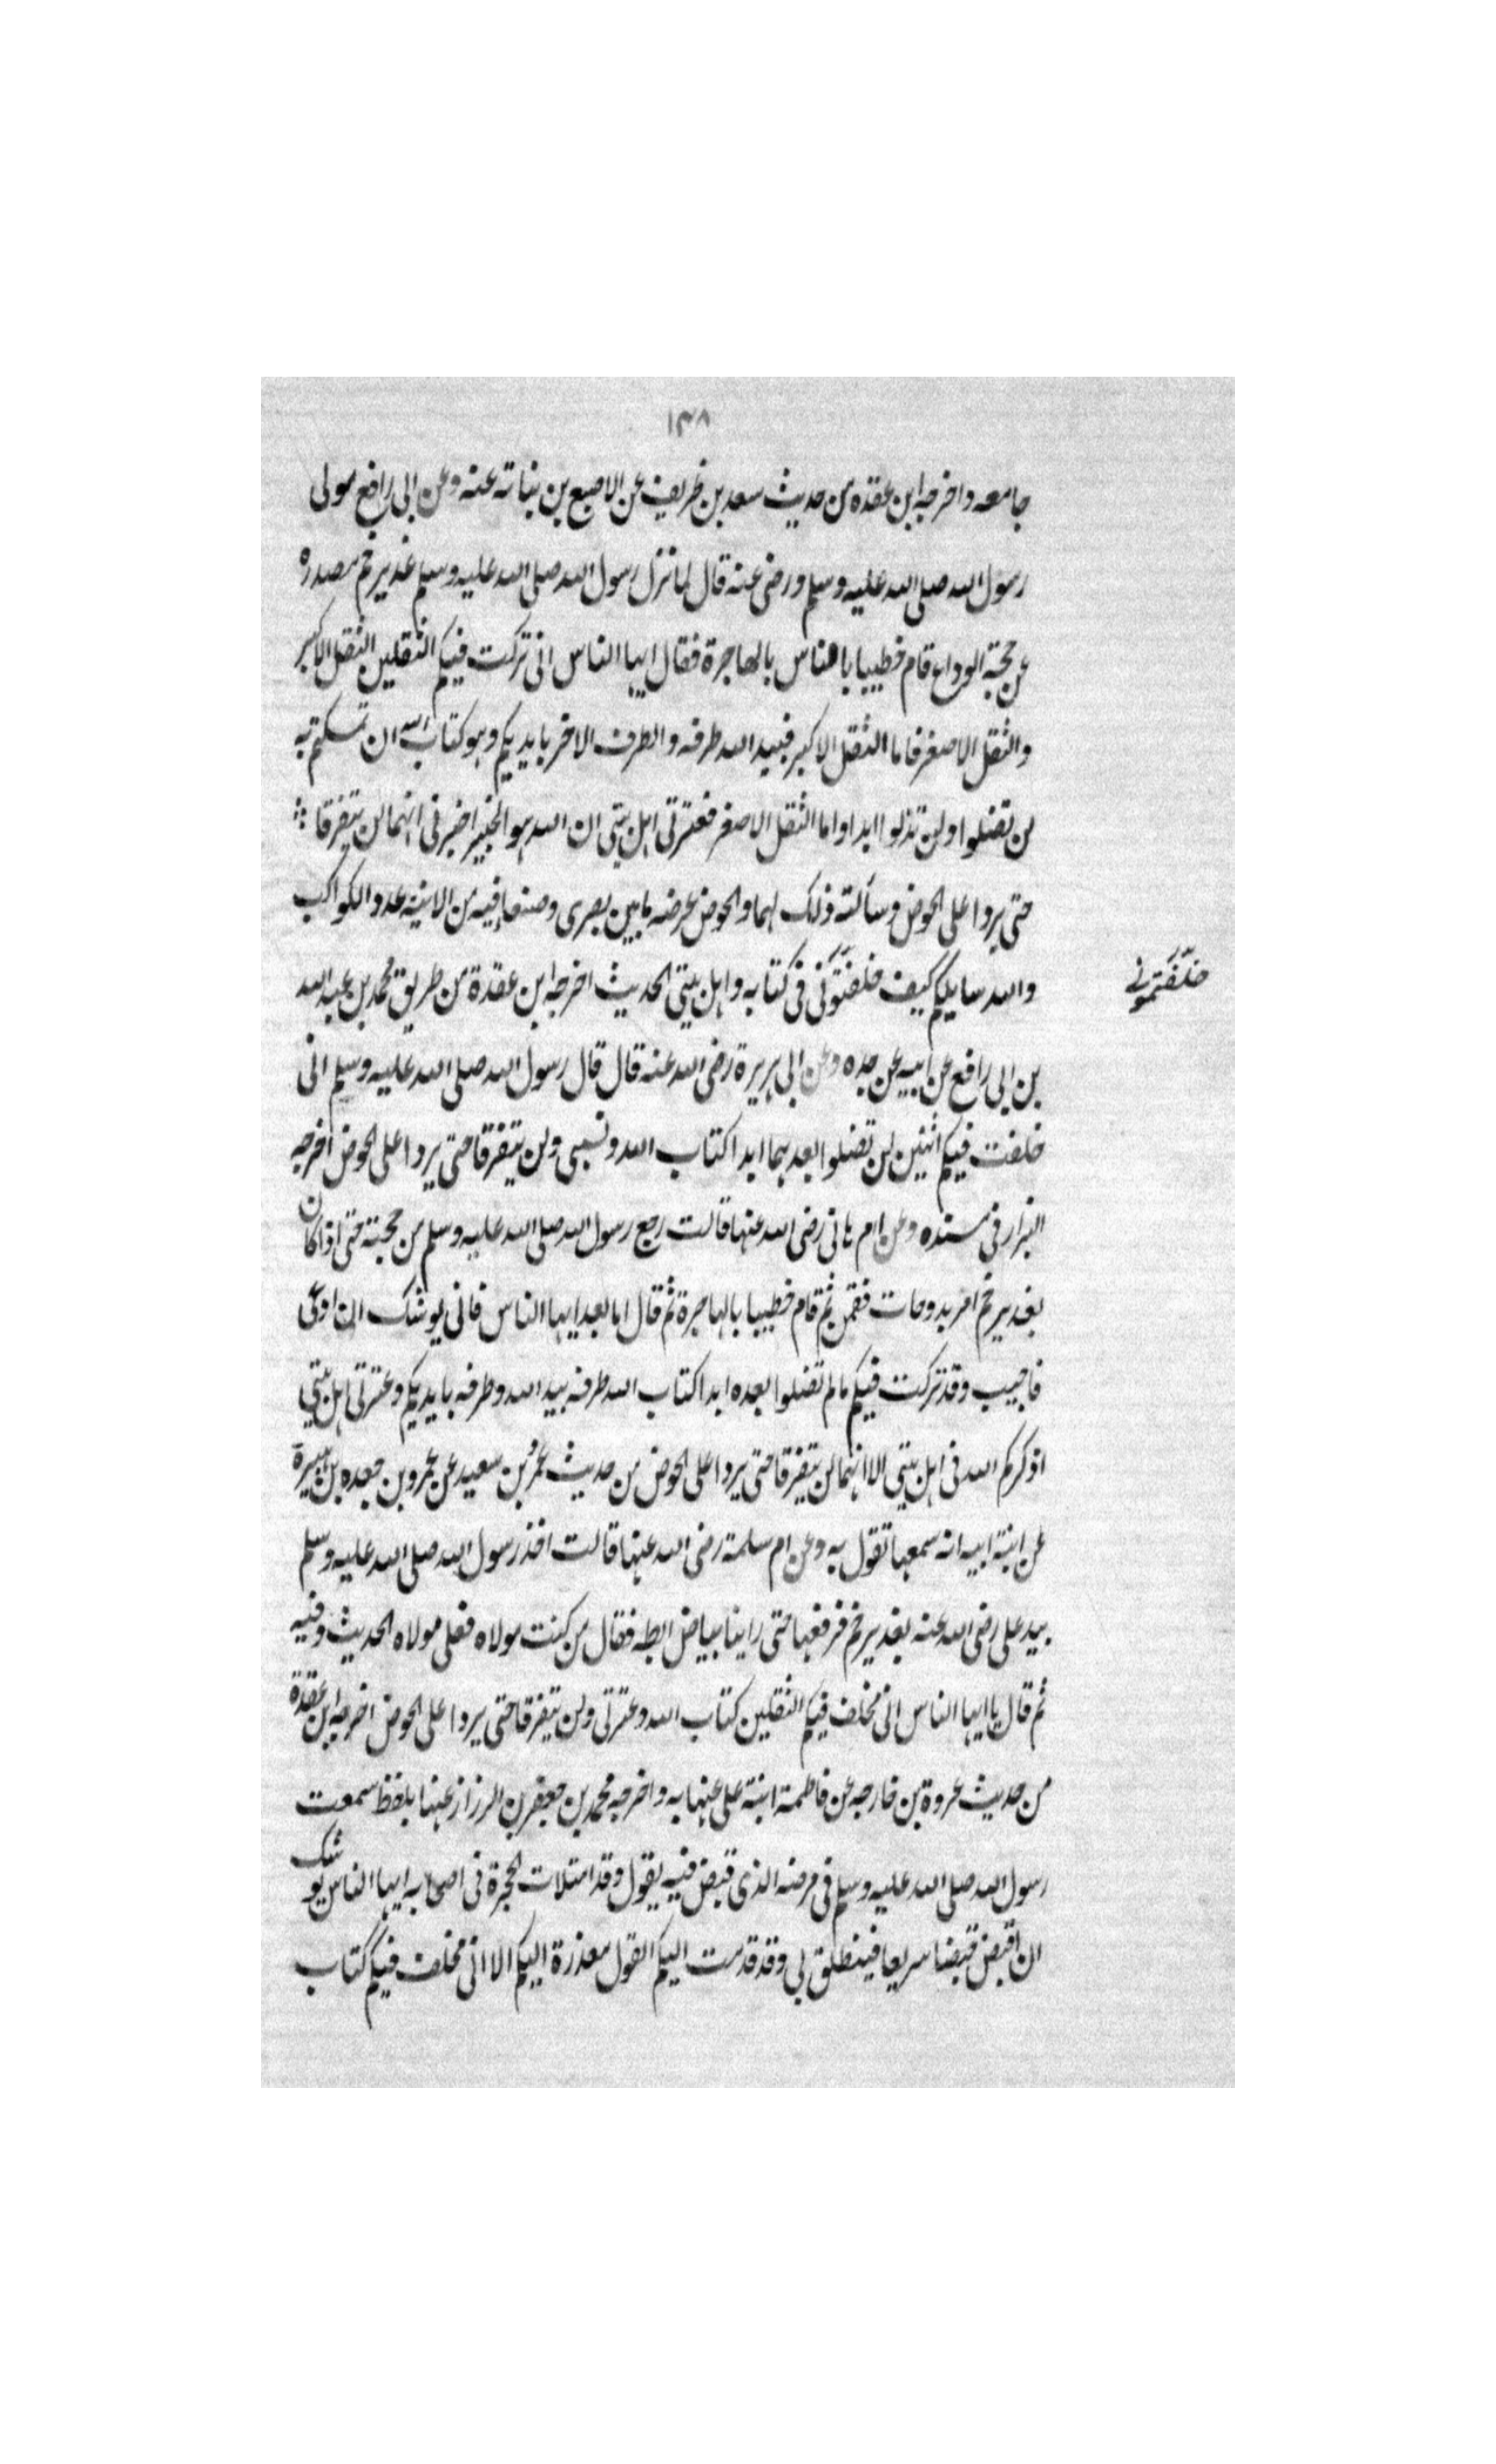 ١٣٨
جامعه واخرجه ابن عقده من حديث سعد بن ظريف عن الاصبع بن نباته عنه وعن ابي رافع مولى
رسول الله صلى الله عليه وسلم ورضى عنه قال لما نزل رسول الله صلى الله عليه وسلم غدير خم مصدره
عن حجة الوداع قام خطيبا بالناس بالهاجرة فقال ايها الناس انى تركت فيكم الثقلين الثقل الاكبر
والثقل الاصغر فاما الثقل الاكبر فبيد الله طرفه والطرف الاخر بايديكم وهو كتاب الله ان تمسكتم به
لن تضلوا ولن تذلوا ابدا واما الثقل الاصغر فعترتى اهل بيتى ان الله هو الخبير اخبرنى انهما لن يتفرقا
حتى يردا على الحوض وسألته ذلك لهما والحوض عرضه ما بين بصرى وصنعا فيه من الانية عدد الكواكب
والله سايلكم كيف خلفتمونى فى كتابه واهل بيتى الحديث اخرجه ابن عقدة من طريق محمد بن عبد الله
خلّفتمونے
بن ابى رافع عن ابيه عن جده وعن ابى هريرة رضى الله عنه قال قال رسول الله صلى الله عليه وسلم انى
خلفت فيكم اثنين لن تضلوا بعدهما ابدا كتاب الله ونسبى ولن يتفرقا حتى يردا على الحوض اخرجه
البزار فى مسنده وعن ام هانى رضى الله عنها قالت رجع رسول الله صلى الله عليه وسلم من حجته حتى اذا كان
بغدير خم امر بدوحات فقمن ثم قام خطيبا بالهاجرة ثم قال اما بعد ايها الناس فانى يوشك ان ادعى
فاجيب وقد تركت فيكم ما لم تضلوا بعده ابدا كتاب الله طرفه بيد الله وطرفه بايديكم وعترتى اهل بيتى
اذكركم الله فى اهل بيتى الا انهما لن يتفرقا حتى يردا على الحوض من حديث عمرُ بن سعيد عن عمرو بن جعده بن هبيرة
عن ابنة ابيه انه سمعها تقول به وعن ام سلمة رضى الله عنها قالت اخذ رسول الله صلى الله عليه وسلم
بيد على رضى الله عنه بغدير خم فرفعها حتى راينا بياض ابطه فقال من كنت مولاه فعلى مولاه الحديث وفيه
ثم قال يا ايها الناس انى مخلف فيكم الثقلين كتاب الله وعترتى ولن يتفرقا حتى يردا على الحوض اخرجه ابن عقدة
من حديث عروة بن خارجه عن فاطمة ابنة على عنها به واخرجه محمد بن جعفر بن الرزاز عنها بلفظ سمعت
رسول الله صلى الله عليه وسلم فى مرضه الذى قبض فيه يقول وقد امتلات الحجرة فى اصحابه ايها الناس يوشك
ان اقبض قبضا سريعا فينطلق بى وقد قدمت اليكم القول معذرة اليكم الا انى مخلف فيكم كتاب